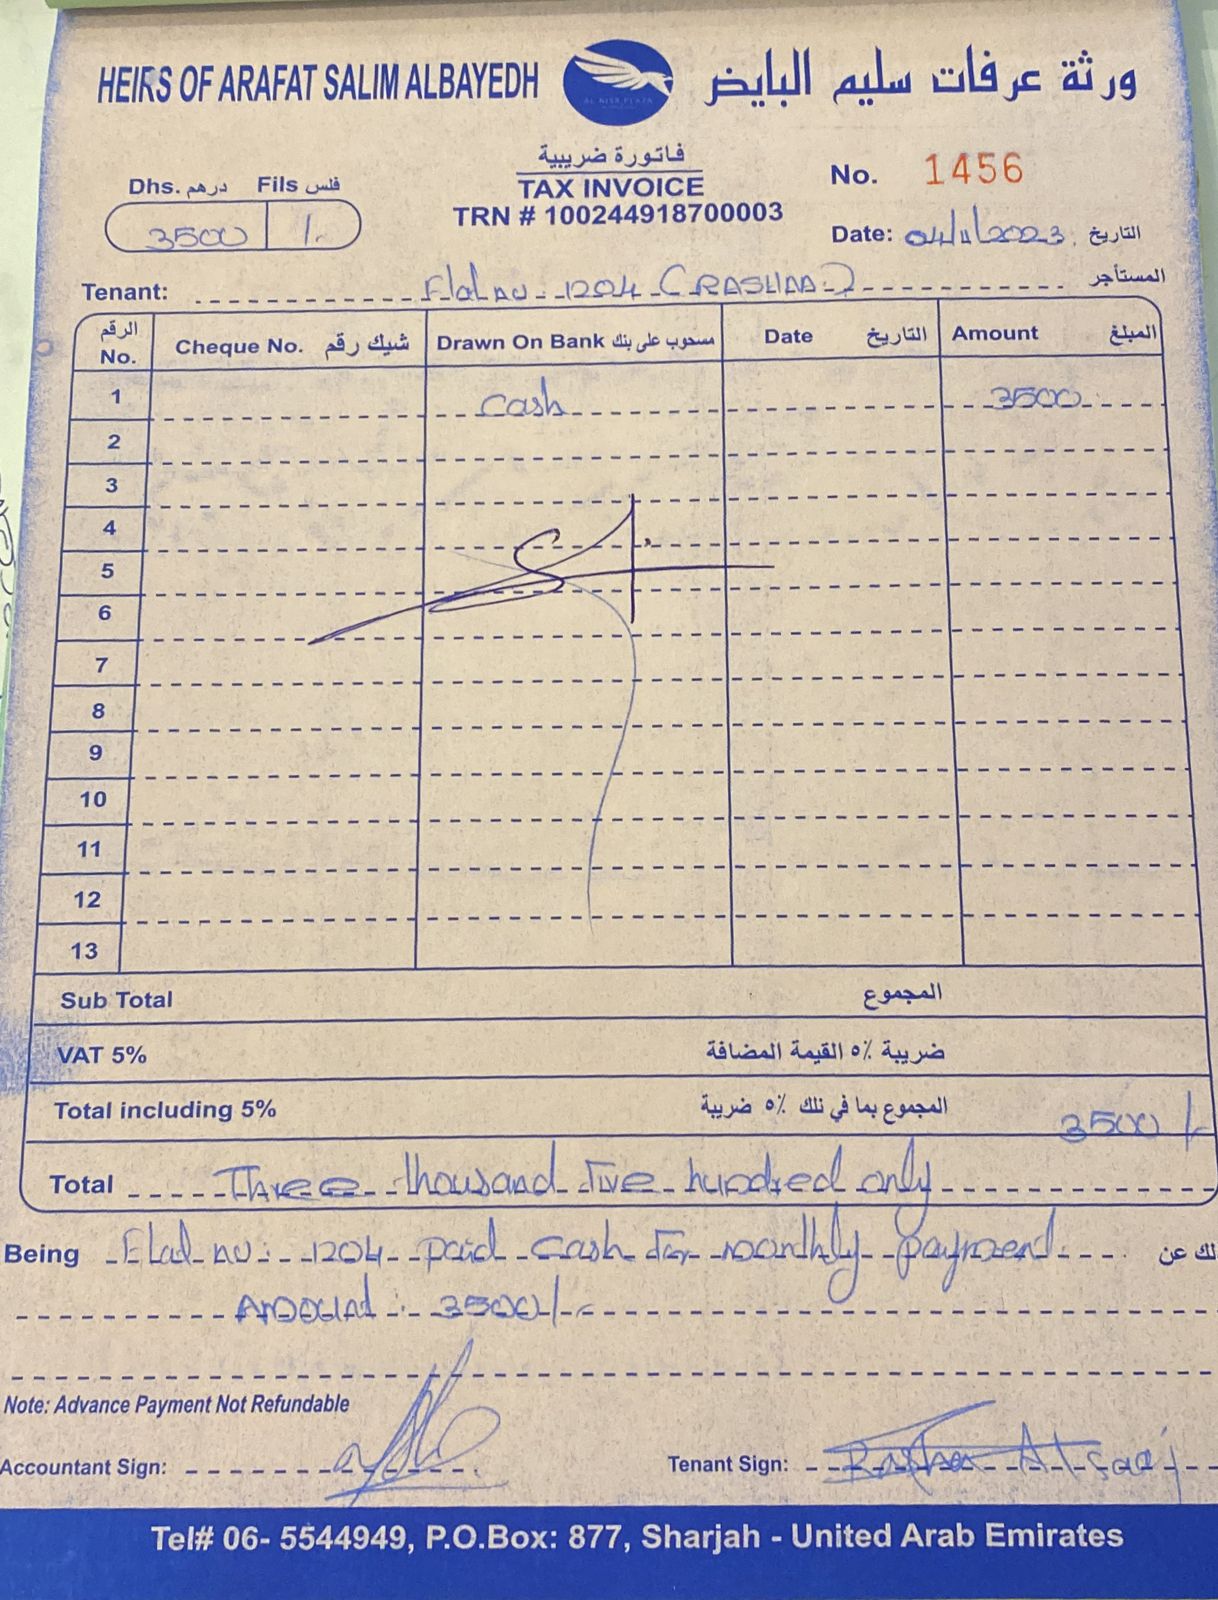 HEIRS OF ARAFAT SALIM ALBAYEDH AL NISR PLAZA ورثة عرفات سليم البايض
فاتورة ضريبية
TAX INVOICE
TRN # 100244918700003
Dhs. درهم Fils فلس
3500 /-
No. 1456
Date: 04/11/2023 التاريخ
Tenant: Flat no: 1204 (RASHAA) المستأجر
الرقم No. Cheque No. شيك رقم Drawn On Bank مسحوب على بنك Date التاريخ Amount المبلغ
1 Cash 3500
2
3
4
5
6
7
8
9
10
11
12
13
Sub Total المجموع
VAT 5% ضريبة ٥٪ القيمة المضافة
Total including 5% المجموع بما في ذلك ٥٪ ضريبة 3500 /-
Total Three thousand five hundred only
Being Flat no: 1204 paid cash for monthly payment لك عن
Amount: 3500/-
Note: Advance Payment Not Refundable
Accountant Sign: Tenant Sign: Rasha
Tel# 06- 5544949, P.O.Box: 877, Sharjah - United Arab Emirates